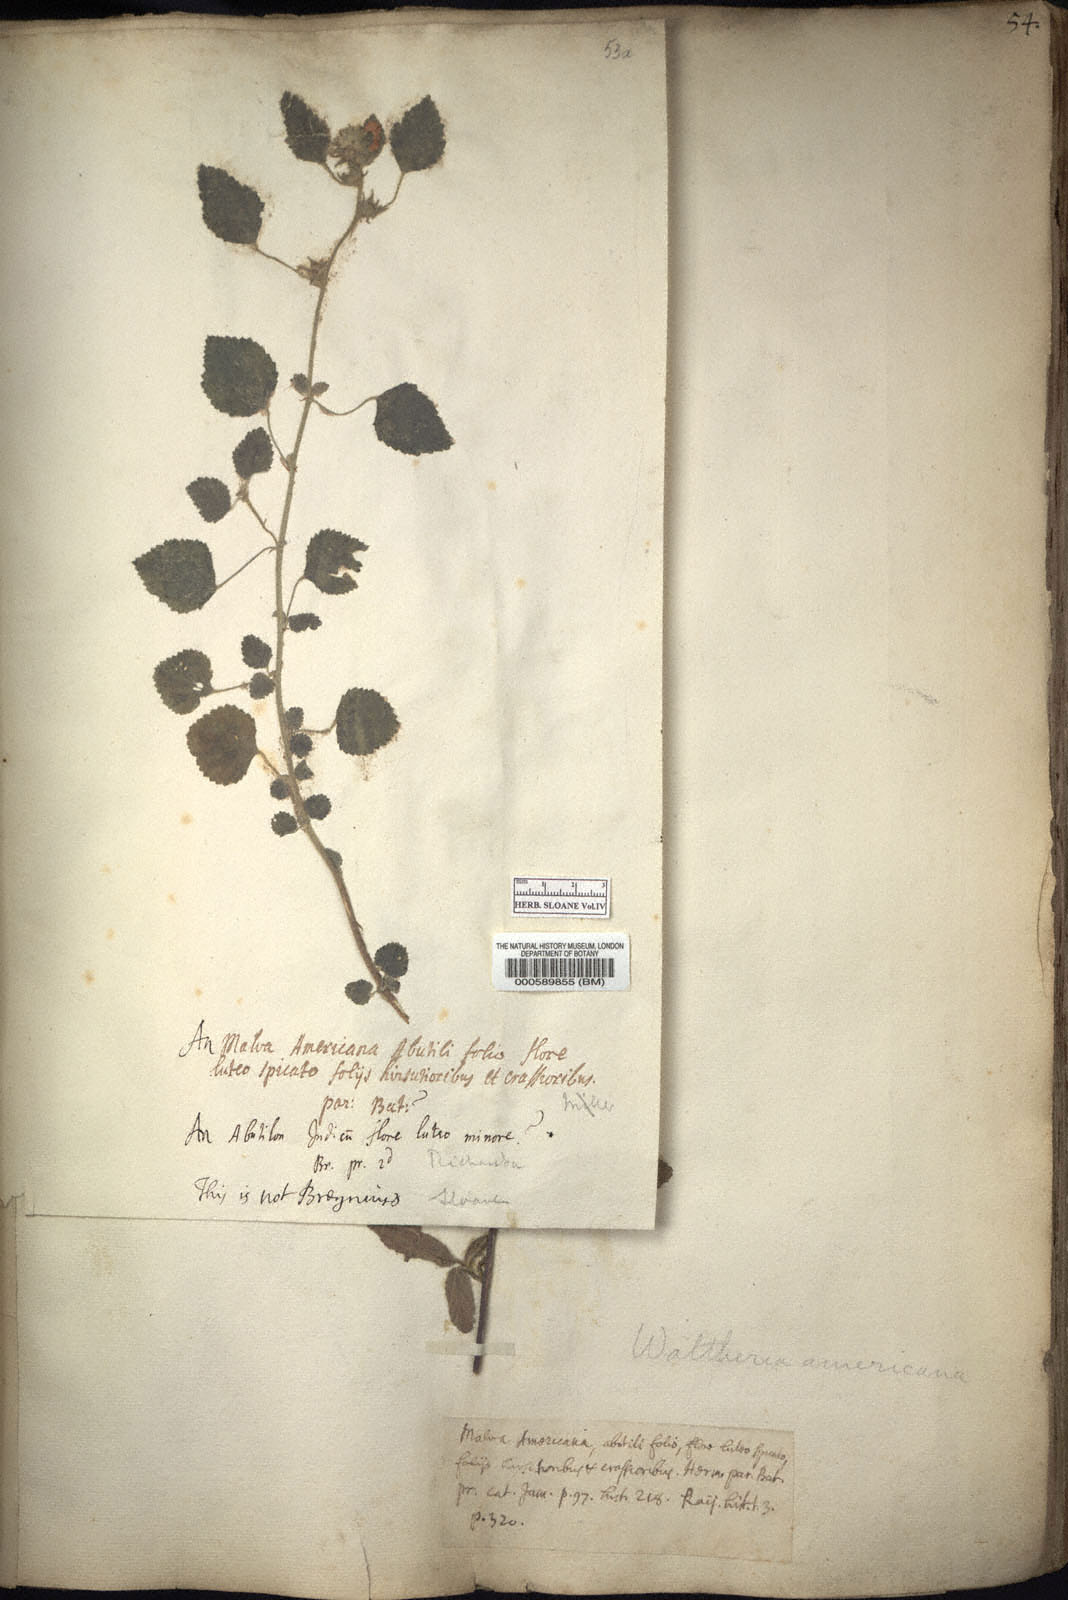 54.
53a
mm 1 2 3
HERB. SLOANE Vol.IV
THE NATURAL HISTORY MUSEUM, LONDON
DEPARTMENT OF BOTANY
000589855 (BM)
An Malva Americana Abutili folio flore
luteo spicato folijs hirsutioribus et crassioribus.
par: Bat:?
An Abutilon Indicū flore luteo minore?
Br. pr. 2d Richardson
This is not Breynius's Sloane
Waltheria americana
Malva Americana, abutili folio, flore luteo spicato,
folijs hirsutioribus & crassioribus. Herm. par. Bat.
pr. cat. Jam. p. 97. hist. 218. Raij. hist. t. 3.
p. 320.